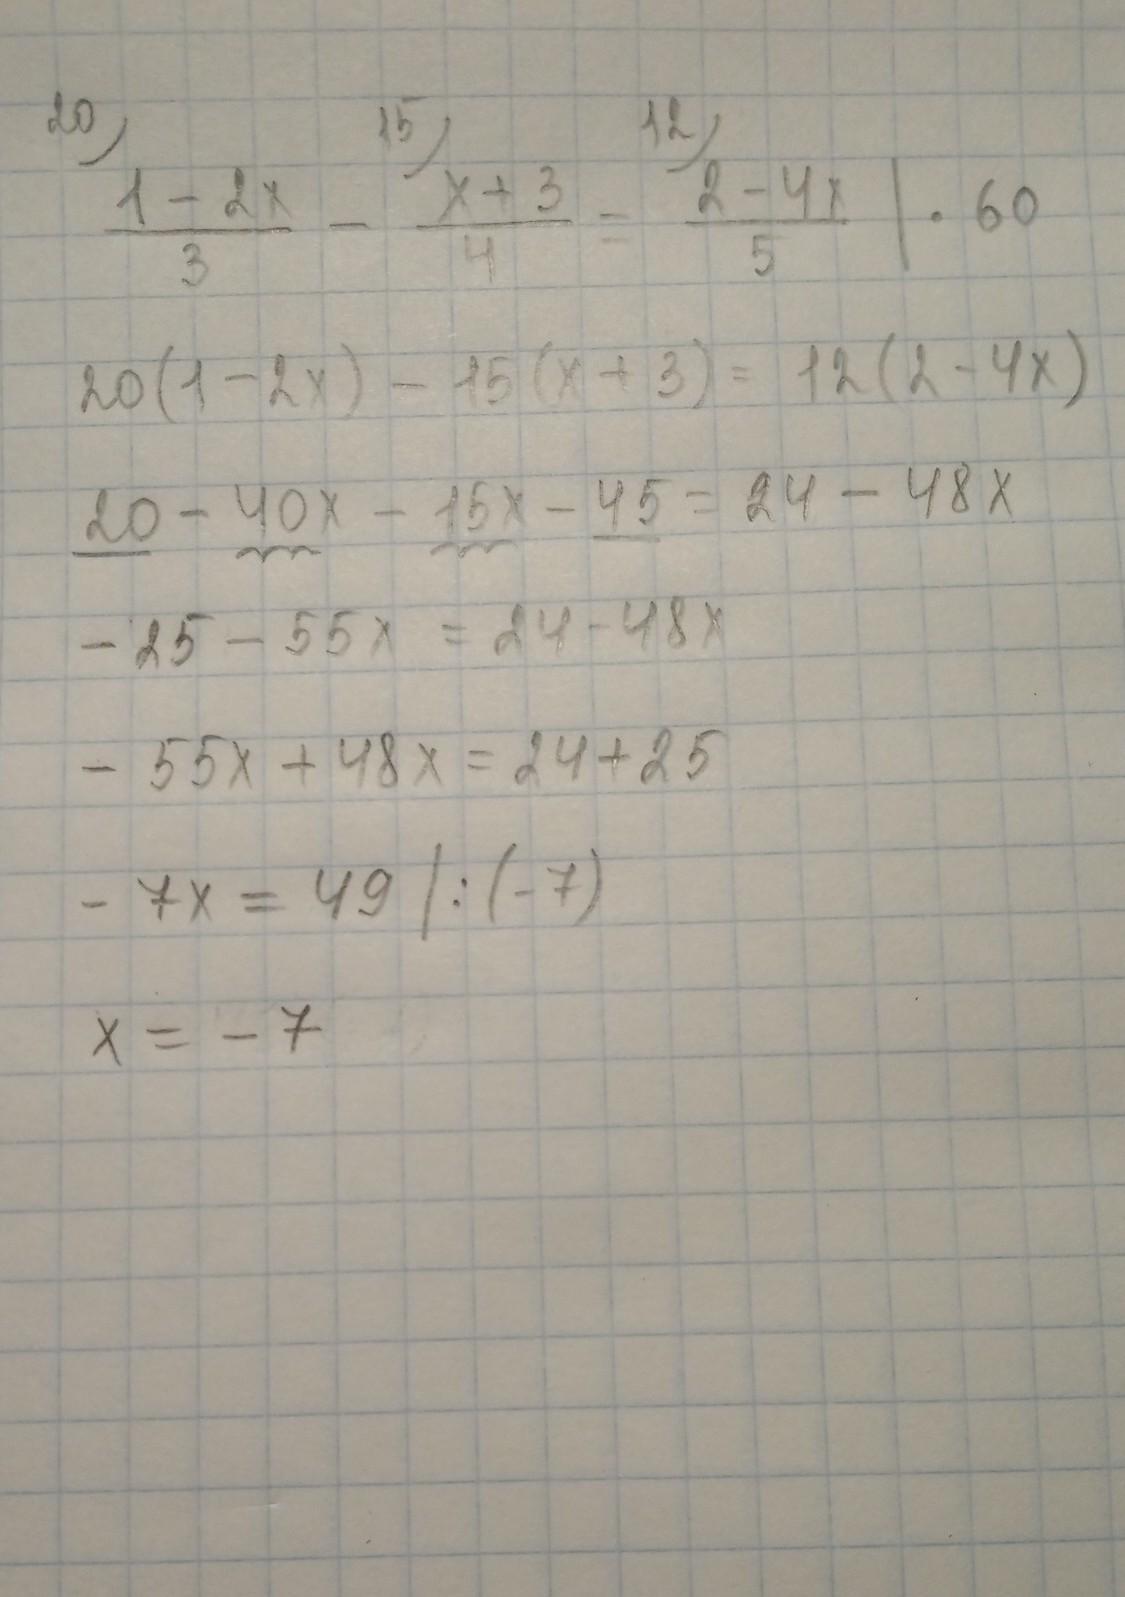 20) 15) 12)
(1-2x)/3 - (x+3)/4 = (2-4x)/5 | · 60
20(1-2x) - 15(x+3) = 12(2-4x)
20 - 40x - 15x - 45 = 24 - 48x
-25 - 55x = 24 - 48x
-55x + 48x = 24 + 25
-7x = 49 | : (-7)
x = -7